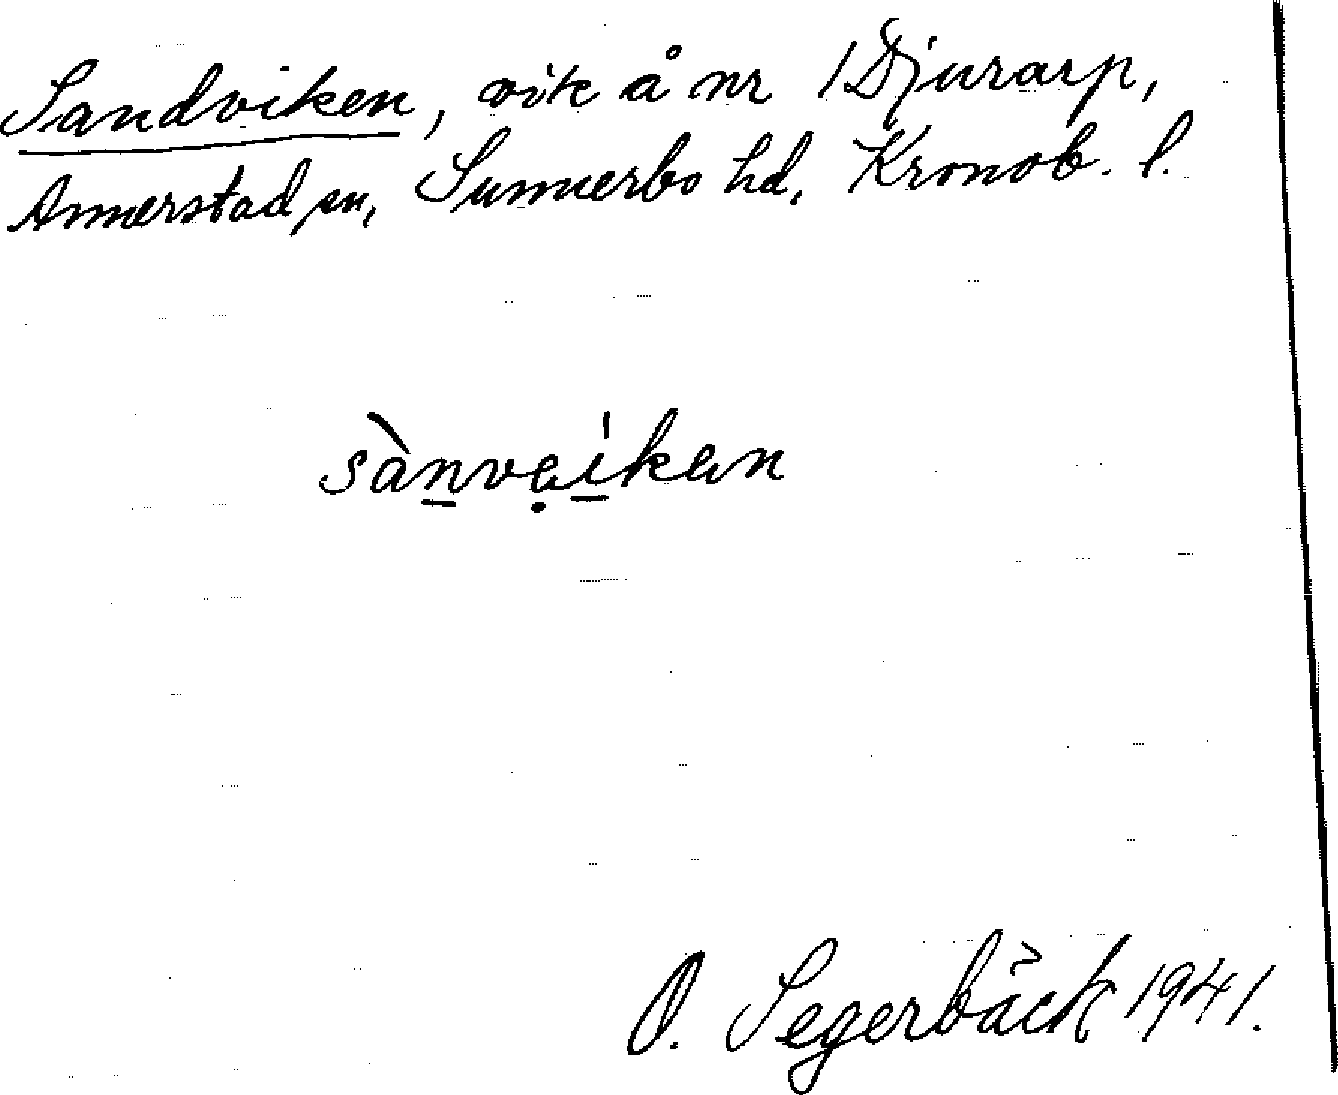 Sandviken, vik å nr 1 Djurarp,
Annerstad sn, Sunnerbo hd, Kronob. l.
sànvạikan
O. Segerbäck 1941.